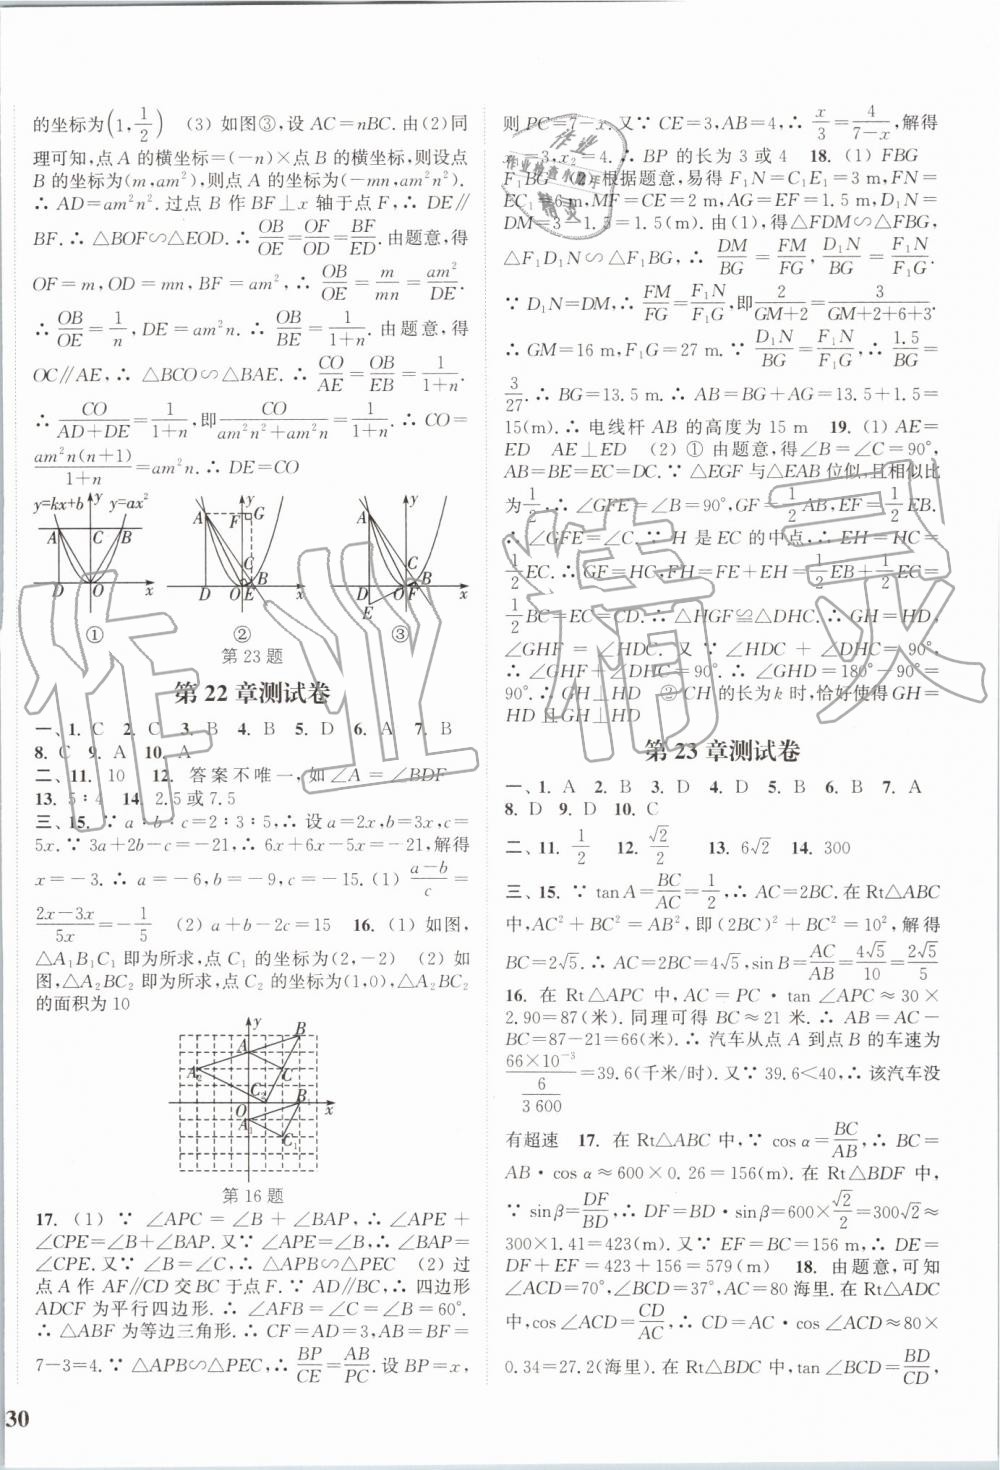 的坐标为(1, 1/2) (3) 如图③,设 AC=nBC.由(2)同
理可知,点 A 的横坐标=(-n)×点 B 的横坐标,则设点
B 的坐标为(m,am²),则点 A 的坐标为(-mn,am²n²).
∴ AD=am²n².过点 B 作 BF⊥x 轴于点 F,∴ DE∥
BF.∴ △BOF∽△EOD.∴ OB/OE=OF/OD=BF/ED.由题意,得
OF=m,OD=mn,BF=am²,∴ OB/OE=m/mn=am²/DE.
∴ OB/OE=1/n,DE=am²n.∴ OB/BE=1/(1+n).由题意,得
OC∥AE,∴ △BCO∽△BAE.∴ CO/AE=OB/EB=1/(1+n).
∴ CO/(AD+DE)=1/(1+n),即CO/(am²n²+am²n)=1/(1+n).∴ CO=
am²n(n+1)/(1+n)=am²n.∴ DE=CO
y=kx+b y y=ax²
A C B
D O x
①
y
A F G
C
B
D O E x
②
y
A
C
B
D O F x
E
③
第 23 题
第 22 章测试卷
一、1. C 2. C 3. B 4. B 5. D 6. A 7. B
8. C 9. A 10. A
二、11. 10 12. 答案不唯一,如∠A=∠BDF
13. 5∶4 14. 2.5或7.5
三、15. ∵ a∶b∶c=2∶3∶5,∴ 设 a=2x,b=3x,c=
5x.∵ 3a+2b-c=-21,∴ 6x+6x-5x=-21,解得
x=-3.∴ a=-6,b=-9,c=-15.(1) (a-b)/c=
(2x-3x)/5x=-1/5 (2) a+b-2c=15 16. (1) 如图,
△A₁B₁C₁ 即为所求,点 C₁ 的坐标为(2,-2) (2) 如
图,△A₂BC₂ 即为所求,点 C₂ 的坐标为(1,0),△A₂BC₂
的面积为 10
y
B
A
A₂ C
C₂
O B₁ x
A₁
C₁
第 16 题
17. (1) ∵ ∠APC=∠B+∠BAP,∴ ∠APE+
∠CPE=∠B+∠BAP.又∵ ∠APE=∠B,∴ ∠BAP=
∠CPE.又∵ ∠B=∠C,∴ △APB∽△PEC (2) 过
点 A 作 AF∥CD 交 BC 于点 F.∵ AD∥BC,∴ 四边形
ADCF 为平行四边形.∴ ∠AFB=∠C=∠B=60°.
∴ △ABF 为等边三角形.∴ CF=AD=3,AB=BF=
7-3=4.∵ △APB∽△PEC,∴ BP/CE=AB/PC.设 BP=x,
30
则 PC=7-x.又∵ CE=3,AB=4,∴ x/3=4/(7-x),解得
=3,x₂=4.∴ BP 的长为 3 或 4 18. (1) FBG
F₁BG 根据题意,易得 F₁N=C₁E₁=3 m,FN=
EC₁=6 m,MF=CE=2 m,AG=EF=1.5 m,D₁N=
DM=3-1.5=1.5(m).由(1),得△FDM∽△FBG,
△F₁D₁N∽△F₁BG,∴ DM/BG=FM/FG,D₁N/BG=F₁N/F₁G.
∵ D₁N=DM,∴ FM/FG=F₁N/F₁G,即2/(GM+2)=3/(GM+2+6+3).
∴ GM=16 m,F₁G=27 m.∵ D₁N/BG=F₁N/F₁G,∴ 1.5/BG=
3/27.∴ BG=13.5 m.∴ AB=BG+AG=13.5+1.5=
15(m).∴ 电线杆 AB 的高度为 15 m 19. (1) AE=
ED AE⊥ED (2) ① 由题意,得∠B=∠C=90°,
AB=BE=EC=DC.∵ △EGF 与△EAB 位似,且相似比
为1/2,∴ ∠GFE=∠B=90°,GF=1/2AB,EF=1/2EB.
∴ ∠GFE=∠C.∵ H 是 EC 的中点,∴ EH=HC=
1/2EC.∴ GF=HC,FH=FE+EH=1/2EB+1/2EC=
1/2BC=EC=CD.∴ △HGF≌△DHC.∴ GH=HD,
∠GHF=∠HDC.又∵ ∠HDC+∠DHC=90°,
∴ ∠GHF+∠DHC=90°.∴ ∠GHD=180°-90°=
90°.∴ GH⊥HD ② CH 的长为 k 时,恰好使得 GH=
HD 且GH⊥HD
第 23 章测试卷
一、1. A 2. B 3. D 4. D 5. B 6. B 7. A
8. D 9. D 10. C
二、11. 1/2 12. √2/2 13. 6√2 14. 300
三、15. ∵ tan A=BC/AC=1/2,∴ AC=2BC.在 Rt△ABC
中,AC²+BC²=AB²,即(2BC)²+BC²=10²,解得
BC=2√5.∴ AC=2BC=4√5,sin B=AC/AB=4√5/10=2√5/5
16. 在 Rt△APC 中,AC=PC·tan∠APC≈30×
2.90=87(米).同理可得 BC≈21 米.∴ AB=AC-
BC=87-21=66(米).∴ 汽车从点 A 到点 B 的车速为
66×10⁻³/(6/3 600)=39.6(千米/时).又∵ 39.6<40,∴ 该汽车没
有超速 17. 在 Rt△ABC 中,∵ cosα=BC/AB,∴ BC=
AB·cosα≈600×0.26=156(m).在 Rt△BDF 中,
∵ sinβ=DF/BD,∴ DF=BD·sinβ=600×√2/2=300√2≈
300×1.41=423(m).又∵ EF=BC=156 m,∴ DE=
DF+EF=423+156=579(m) 18. 由题意,可知
∠ACD=70°,∠BCD=37°,AC=80 海里.在 Rt△ADC
中,cos∠ACD=CD/AC,∴ CD=AC·cos∠ACD≈80×
0.34=27.2(海里).在 Rt△BDC 中,tan∠BCD=BD/CD,
作业精灵